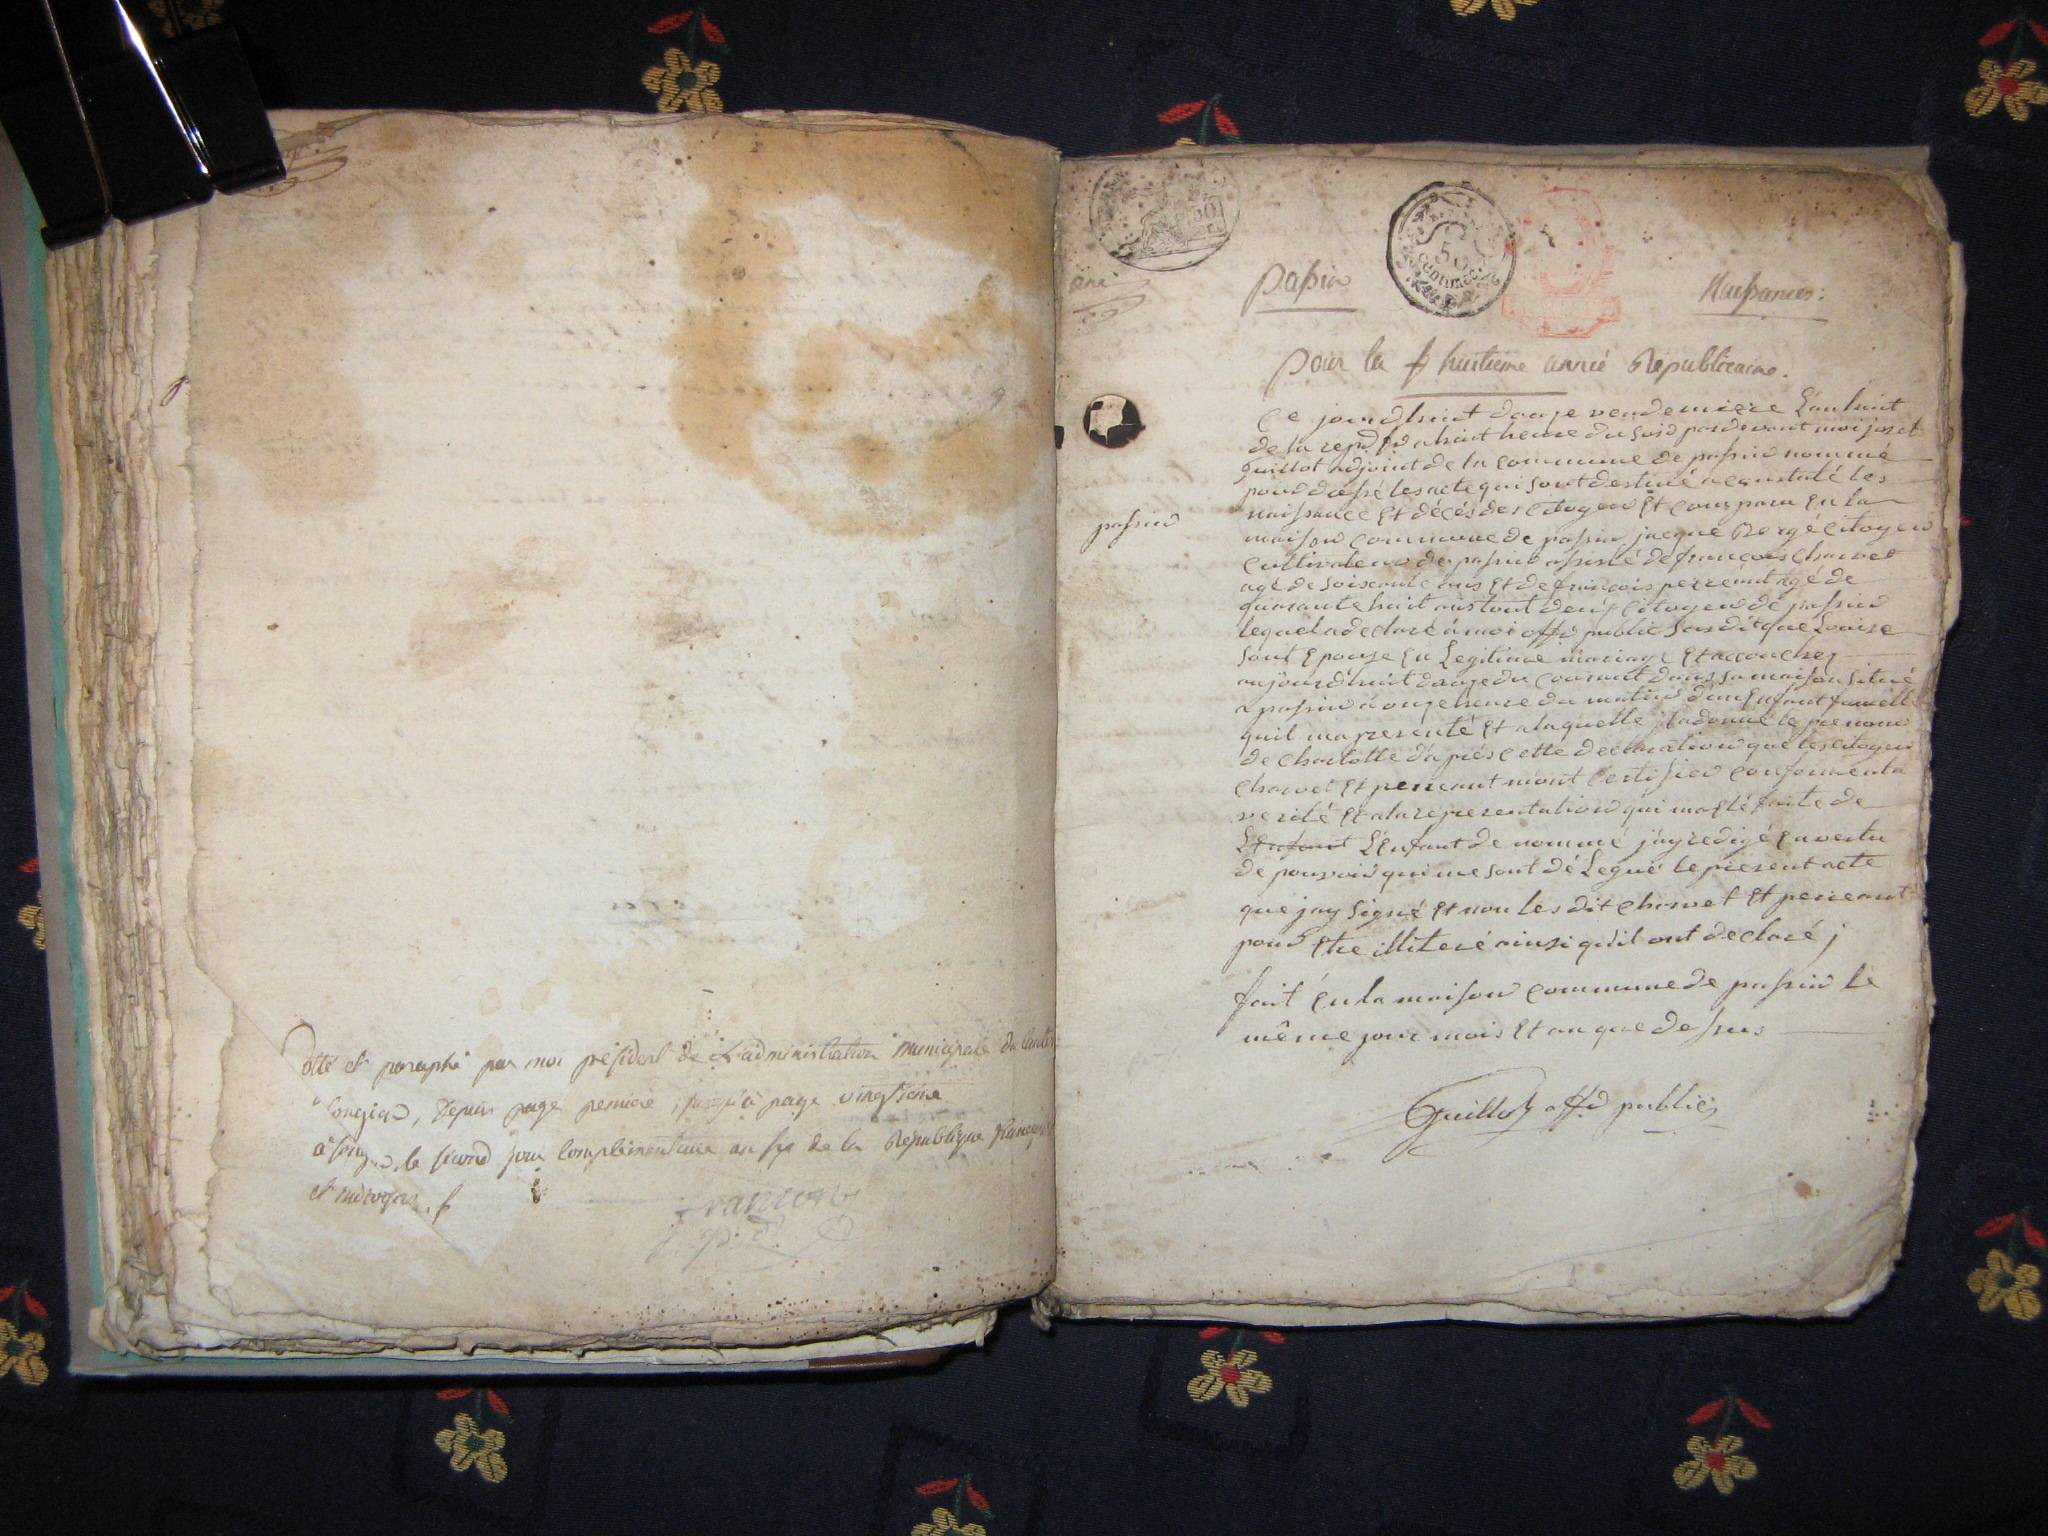 Cotté et paraphé par moi président de L'administration municipale du canton
de Songieu, Depuis page premiere, jusqu'à page vingtieme
à Songieu le second jour Complémentaire an sept de la République françoise
et indivisible
p. d.
50
centimes
passin
Naissances:
pour la huitieme année Républicaine.
Ce jourdhuit douze vendemiere L'an huit
de la repu. a huit heure du soir pardevant moi joset
guillot adjoint de la commune de passin nommé
pour dressé les acte qui sont destiné a constaté les
naissance Et décés des citoyen Et comparu En la
passin
maison commune de passin jacque Berge citoyen
cultivateur de passin assisté de françois charvet
agé de soisente ans Et de françois perreaut agé de
quarante huit ans tout deux citoyen de passin
lequel a declaré à moi offi. public susdit que Louise
sont Epouse En Legitime mariage Et accouchez
aujourdhuit douze du courant dans sa maison situé
a passin à onze heure du matin d'un Enfant famelle
quil ma presenté Et a laquelle il a donné le prenom
de charlotte d'aprés cette declaration que les citoyen
charvet Et perreaut mont certifier conforme a la
verité Et a la representation qui ma Eté faite de
L'Enfant L'Enfant de nommé j'ay redigé En vertu
de pouvoir qui me sont délegué le present acte
que jay signé Et non les dit charvet Et perreaut
pour Etre illiteré ainsi qu'il ont declaré j
fait En la maison commune de passin le
même jour mois Et an que dessus
Guillot offi. public